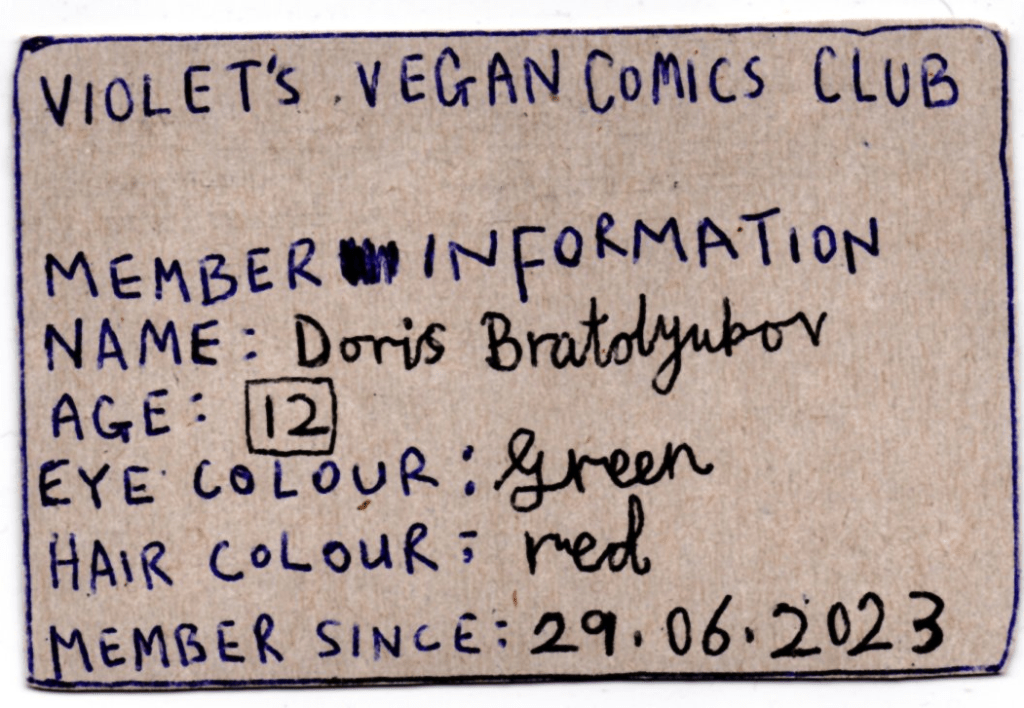 VIOLET'S VEGAN COMICS CLUB
MEMBER INFORMATION
NAME: Doris Bratolyubov
AGE: 12
EYE COLOUR: Green
HAIR COLOUR: red
MEMBER SINCE: 29.06.2023